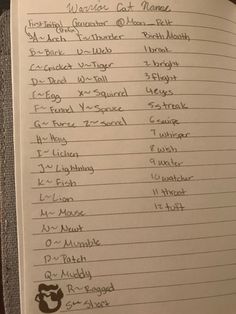 Warrior Cat Names
First Initial Generator @Moon_Pelt
A~Arch T~Thunder Birth Month
B~Bark U~Web 1 broat
C~Cricket V~Tiger 2 bright
D~Dead W~Tall 3 flight
E~Egg X~Squirrel 4 eyes
F~Funnel Y~Spruce 5 streak
G~Furze Z~Sorrel 6 swipe
H~Hay 7 whisper
I~Lichen 8 wish
J~Lightning 9 water
K~Fish 10 watcher
L~Lion 11 throat
M~Mouse 12 tuft
N~Newt
O~Mumble
P~Patch
Q~Muddy
R~Ragged
S~Short